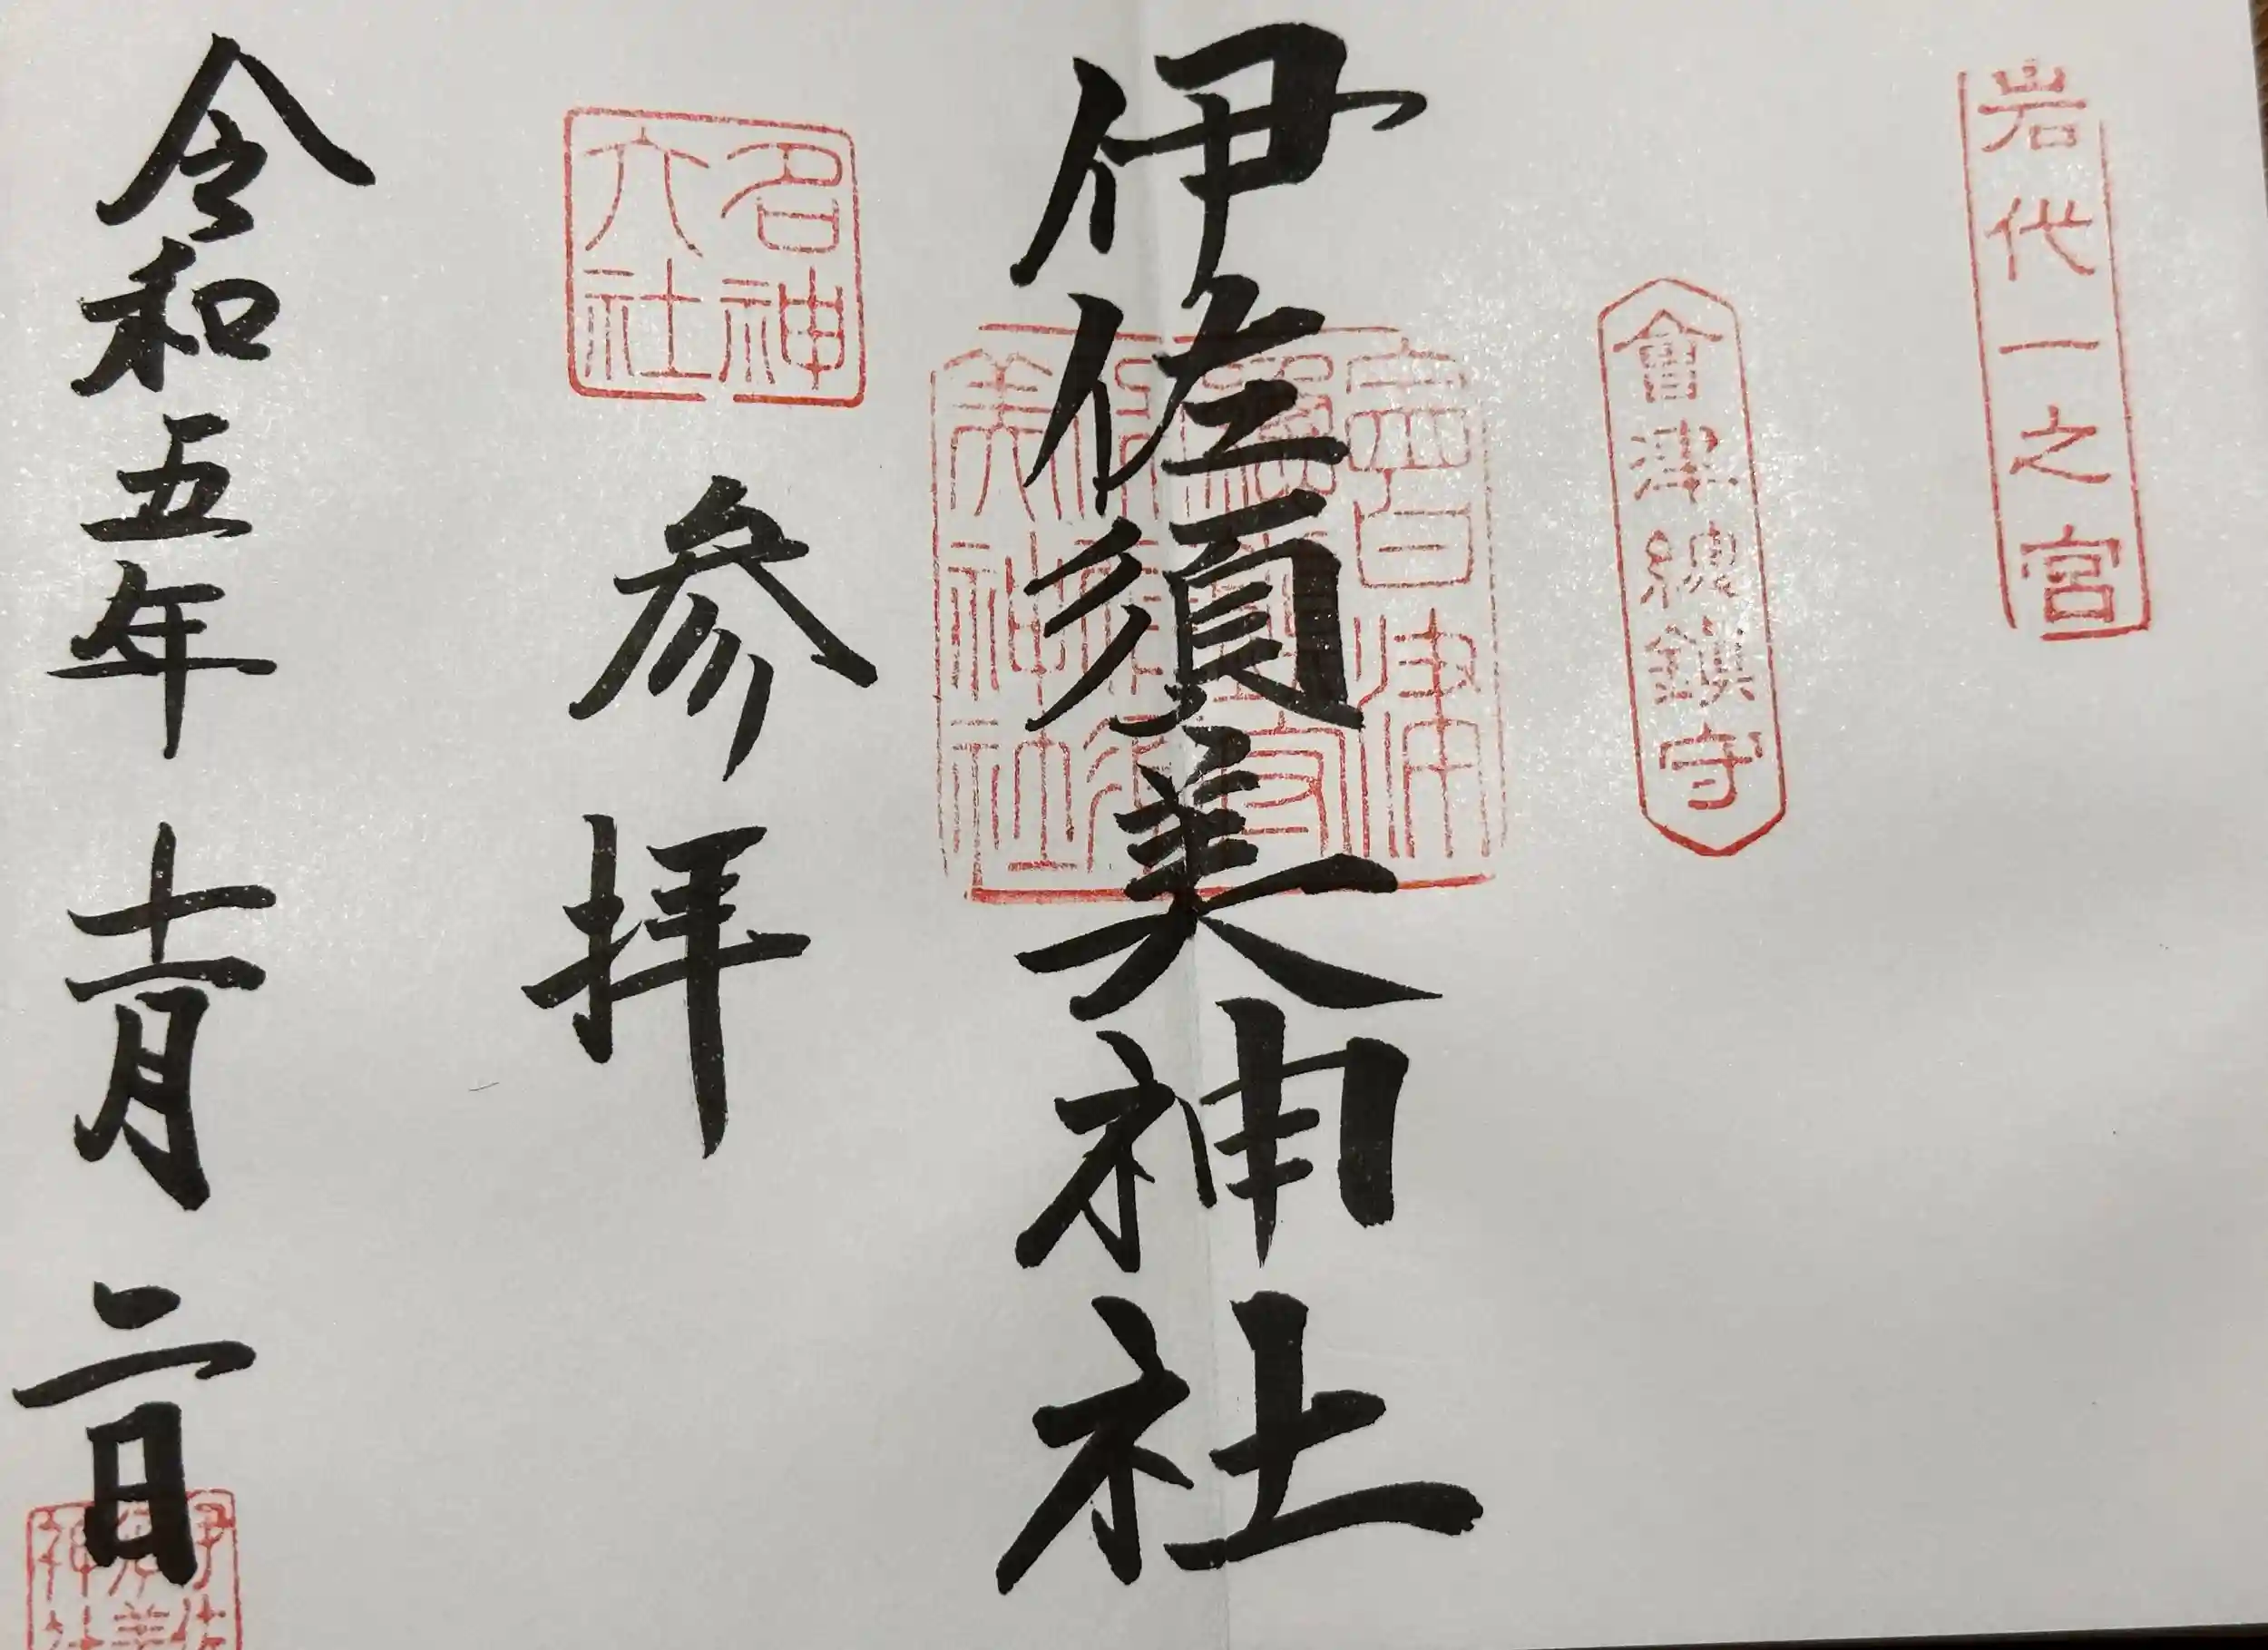 岩代一之宮
會津總鎮守
伊佐須美神社
會津
美神社
名神大社
参拝
令和五年十一月二日
伊佐
須美
神社